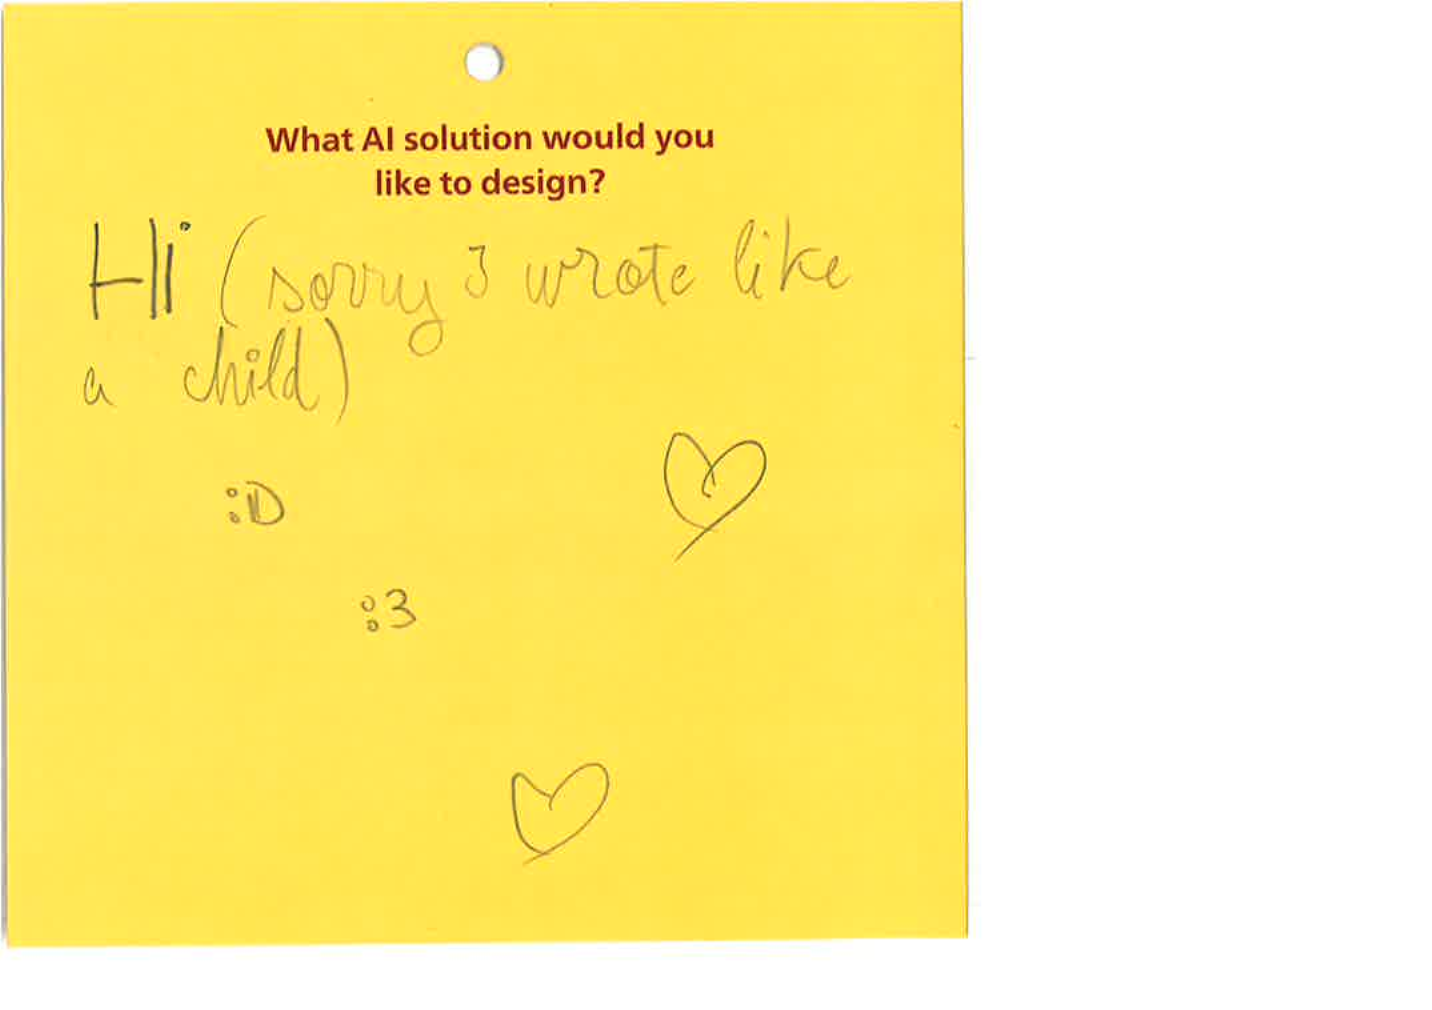 What AI solution would you
like to design?
Hi (sorry I wrote like
a child)
:D
:3